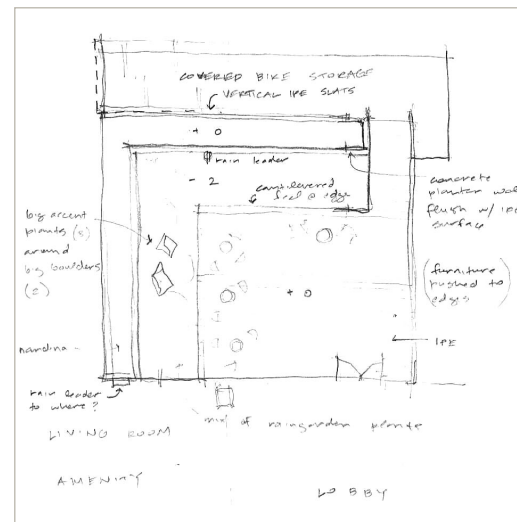 COVERED BIKE STORAGE
VERTICAL IPE SLATS
+ 0
rain leader
- 2
cantilevered
feel @ edge
concrete
planter wall
flush w/ ipe
surface
big accent
plants (3)
around
big boulders
(2)
(furniture
pushed to
edges)
+ 0
IPE
nandina
rain leader
to where?
mix of raingarden plants
LIVING ROOM
AMENITY
LOBBY